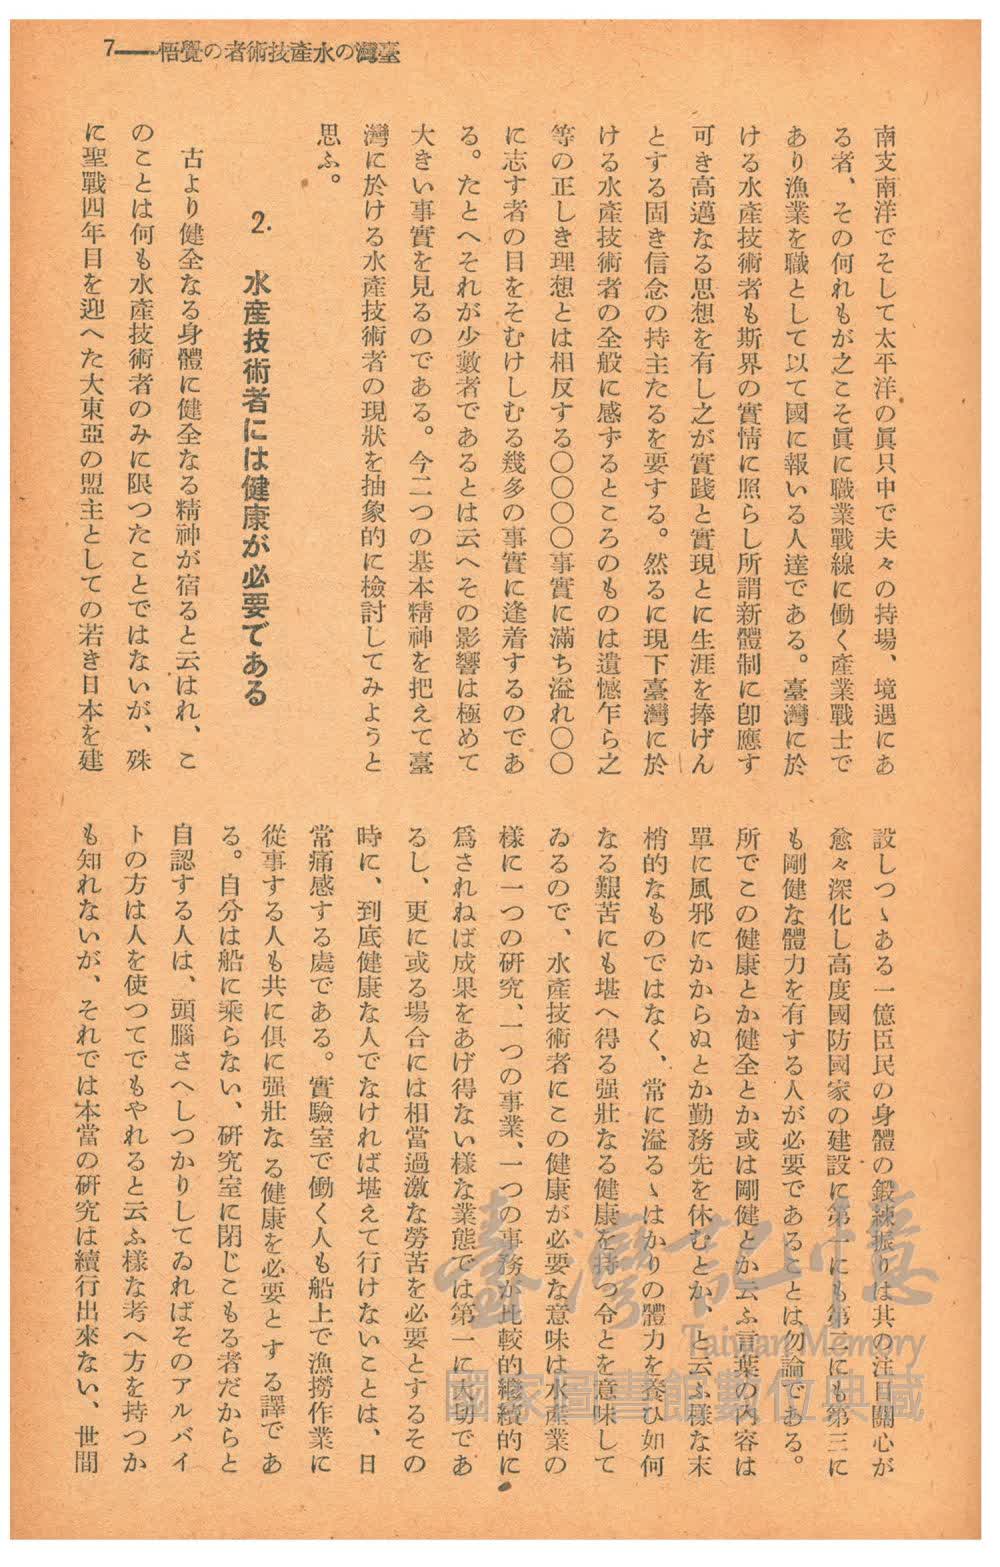 臺灣の水產技術者の覺悟——7
南支南洋でそして太平洋の眞只中で夫々の持場、境遇にあ
る者、その何れもが之こそ眞に職業戰線に働く產業戰士で
あり漁業を職として以て國に報いる人達である。臺灣に於
ける水產技術者も斯界の實情に照らし所謂新體制に卽應す
可き高邁なる思想を有し之が實踐と實現とに生涯を捧げん
とする固き信念の持主たるを要する。然るに現下臺灣に於
ける水產技術者の全般に感ずるところのものは遺憾乍ら之
等の正しき理想とは相反する〇〇〇〇事實に滿ち溢れ〇〇
に志す者の目をそむけしむる幾多の事實に逢着するのであ
る。たとへそれが少數者であるとは云へその影響は極めて
大きい事實を見るのである。今二つの基本精神を把えて臺
灣に於ける水產技術者の現狀を抽象的に檢討してみようと
思ふ。
2. 水產技術者には健康が必要である
古より健全なる身體に健全なる精神が宿ると云はれ、こ
のことは何も水產技術者のみに限つたことではないが、殊
に聖戰四年目を迎へた大東亞の盟主としての若き日本を建
設しつゝある一億臣民の身體の鍛練振りは其の注目關心が
愈々深化し高度國防國家の建設に第一にも第二にも第三に
も剛健な體力を有する人が必要であることは勿論である。
所でこの健康とか健全とか或は剛健とか云ふ言葉の內容は
單に風邪にかからぬとか勤務先を休むとか、と云ふ樣な末
梢的なものではなく、常に溢るゝばかりの體力を養ひ如何
なる艱苦にも堪へ得る强壯なる健康を持つ令とを意味して
ゐるので、水產技術者にこの健康が必要な意味は水產業の
樣に一つの硏究、一つの事業、一つの事務が比較的繼續的に
爲されねば成果をあげ得ない樣な業態では第一に大切であ
るし、更に或る場合には相當過激な勞苦を必要とするその
時に、到底健康な人でなければ堪えて行けないことは、日
常痛感する處である。實驗室で働く人も船上で漁撈作業に
從事する人も共に俱に强壯なる健康を必要とする譯であ
る。自分は船に乘らない、硏究室に閉じこもる者だからと
自認する人は、頭腦さへしつかりしてゐればそのアルバイ
トの方は人を使つてでもやれると云ふ樣な考へ方を持つか
も知れないが、それでは本當の硏究は續行出來ない、世間
臺灣記憶
Taiwan Memory
國家圖書館數位典藏